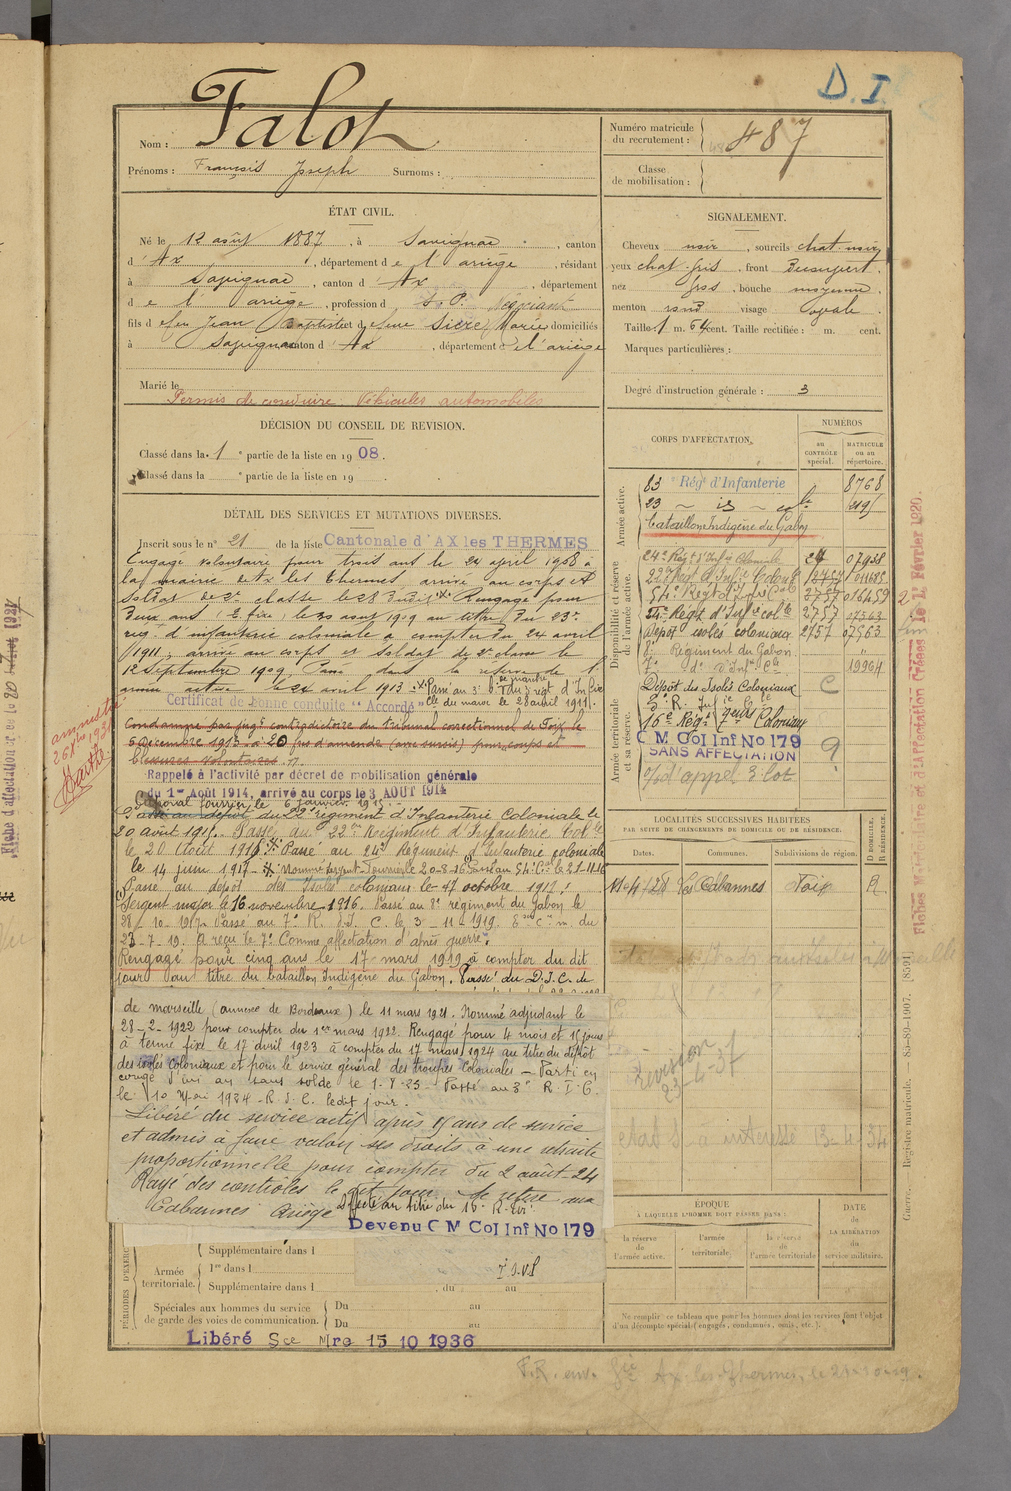 D.I.
Nom : Falot
Prénoms : François Joseph Surnoms :
Numéro matricule du recrutement : 487
Classe de mobilisation :
ÉTAT CIVIL.
Né le 12 août 1887, à Savignac, canton
d'Ax, département de l'ariège, résidant
à Savignac, canton d'Ax, département
de l'ariège, profession d S.P. Négociant
fils de feu Jean Baptiste et de feue Sicre Marie domiciliés
à Savignac canton d'Ax, département de l'ariège
Marié le
Permis de conduire Véhicules automobiles
SIGNALEMENT.
Cheveux noir, sourcils chat-noir
yeux chat-gris, front Découvert.
nez gros, bouche moyenne.
menton rond visage ovale.
Taille: 1 m. 64 cent. Taille rectifiée : m. cent.
Marques particulières :
Degré d'instruction générale : 3
DÉCISION DU CONSEIL DE REVISION.
Classé dans la 1e partie de la liste en 1908.
Classé dans la e partie de la liste en 19 .
DÉTAIL DES SERVICES ET MUTATIONS DIVERSES.
Inscrit sous le n° 21 de la liste Cantonale d'AX les THERMES
Engagé volontaire pour trois ans le 24 avril 1908 à
la mairie de Ax les Thermes arrivé au corps et
soldat de 2e classe le 28 dudit. Rengagé pour
Deux ans le 30 aout 1909 au titre du 23e
rég. d'infanterie coloniale à compter du 24 avril
1911, arrivé au corps et soldat de 2e classe le
12 Septembre 1909 Passé dans la réserve de l'
armée active le 24 avril 1913. Passé au 3e
du maroc le 28 avril 1911.
Certificat de bonne conduite "Accordé"
Condamné par jugt contradictoire du tribunal correctionnel de Foix le
6 Décembre 1913 à 20 frs d'amende (avec sursis) pour coups et
blessures volontaires.
amnistié
Rappelé à l'activité par décret de mobilisation générale
du 1er Août 1914, arrivé au corps le 3 AOUT 1914
Caporal fourrier le 6 janvier 1915.
Passé au dépôt du 22e régiment d'Infanterie Coloniale le
20 août 1915. Passé au 22me Régiment d'Infanterie Colle
le 20 Août 1916. Passé au 24e Régiment d'Infanterie coloniale
le 14 juin 1917. Nommé Sergent-Fourrier le 20-8-16 Passé au 54e Cal le 21-11-16
Passé au dépôt des Isolés coloniaux le 17 octobre 1917.
Sergent major le 16 novembre 1916. Passé au 8e régiment du Gabon le
28-10-1917. Passé au 7e R. d'I. C. le 3-11-1919.
23-7-19. A reçu le 7e Comme affectation d'après guerre.
Rengagé pour cinq ans le 17 mars 1919 à compter du dit
jour au titre du bataillon Indigène du Gabon. Passé au D.I.C. de
de marseille (annexe de Bordeaux) le 11 mars 1921. Nommé adjudant le
28-2-1922 pour compter du 1er mars 1922. Rengagé pour 4 mois et 15 jours
à terme fixe le 17 avril 1923 à compter du 17 mars 1924 au titre du dépôt
des isolés Coloniaux et pour le service général des troupes Coloniales - Parti en
congé d'un an sans solde le 1-8-23 Passé au 3e R.I.C.
le 10 Mai 1924 - R.I.C. ledit jour.
Libéré du service actif après 15 ans de service
et admis à faire valoir ses droits à une retraite
proportionnelle pour compter du 2 août 24
Rayé des contrôles le dit jour se retire aux
Cabannes Ariège Affecté au titre du 16e
Devenu C M Col Inf No 179
CORPS D'AFFECTATION.
NUMÉROS
au CONTRÔLE spécial.
MATRICULE ou au répertoire.
Armée active.
83e Régt d'Infanterie 8768
23 - is - cole
Bataillon Indigène du Gabon
Disponibilité et réserve de l'armée active.
24e Régt d'Infie Coloniale 24 07938
22e Régt d'Infie Coloniale
54e Régt d'Infie Cole 2757 016459
54e Régt d'Infie cole 2757 07563
Dépôt isolés coloniaux 2757 07563
8e Régiment du Gabon "
7e do d'Infie Cle 19964
Dépôt des Isolés Coloniaux C
Armée territoriale et sa réserve.
3e R.
16e Régt Coloniaux
C M Col Inf No 179
SANS AFFECTATION
9
LOCALITÉS SUCCESSIVES HABITÉES
PAR SUITE DE CHANGEMENTS DE DOMICILE OU DE RÉSIDENCE.
Dates. Communes. Subdivisions de région. D DOMICILE. R RÉSIDENCE.
11-4-28 Les Cabannes Foix R
Révision
23-4-37
13-4-34
ÉPOQUE
À LAQUELLE L'HOMME DOIT PASSER DANS :
la réserve de l'armée active. l'armée territoriale. la réserve de l'armée territoriale
DATE DE LA LIBÉRATION du service militaire.
Ne remplir ce tableau que pour les hommes dont les services font l'objet
d'un décompte spécial (engagés, condamnés, omis, etc.).
PÉRIODES D'EXERC
Armée territoriale.
Supplémentaire dans l
1re dans l
Supplémentaire dans l , du au
Spéciales aux hommes du service
de garde des voies de communication.
Du au
Du au
Libéré Sce Mre 15 10 1936
Ax-les-Thermes, le 21-10-19
Fiches Matriculaire et d'Affectation Créées le 1er Février 1920.
Guerre. — Registre matricule. — 85-89-1907. [8591]